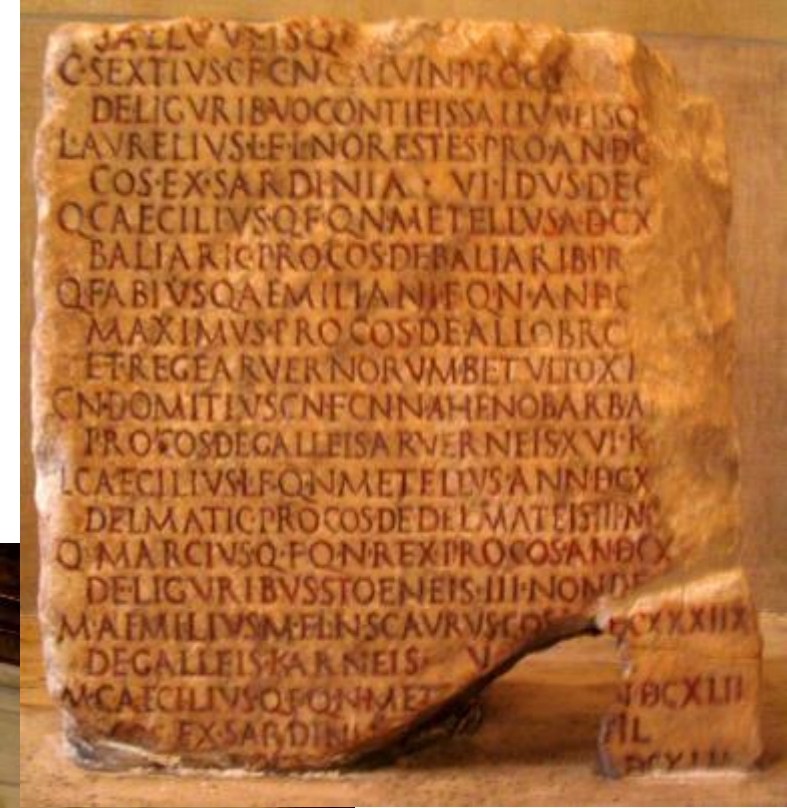 SALLVVEISQ
C·SEXTIVS·C·F·C·N·CALVIN·PROCO
DE·LIGVRIB·VOCONTIEIS·SALLVVEISQ
L·AVRELIVS·L·F·L·N·ORESTES·PRO·AN·DC
COS·EX·SARDINIA · VI·IDVS·DEC
Q·CAECILIVS·Q·F·Q·N·METELLVS·A·DCX
BALIARIC·PRO·COS·DE·BALIARIB·PR
Q·FABIVS·Q·AEMILIANI·F·Q·N·AN·DC
MAXIMVS·PRO·COS·DE·ALLOBRO
ET·REGE·ARVERNORVM·BETVLTO·X·
CN·DOMITIVS·CN·F·CN·N·AHENOBARBA
PRO·COS·DE·GALLEIS·ARVERNEIS·XVI·K
L·CAECILIVS·L·F·Q·N·METELLVS·ANN·DCX
DELMATIC·PRO·COS·DE·DELMATEIS·III·NO
Q·MARCIVS·Q·F·Q·N·REX·PRO·COS·AN·DCX
DE·LIGVRIBVS·STOENEIS·III·NON·DE
M·AEMILIVS·M·F·L·N·SCAVRVS·COS CXXXIIX
DE·GALLEIS·KARNEIS· V
M·CAECILIVS·Q·F·Q·N·MET N·DCXLII
EX·SARDINI IL
DCXLII